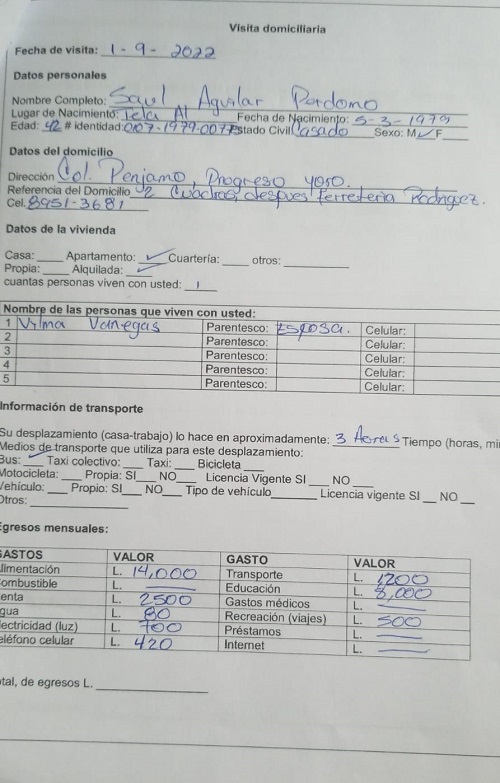 Visita domiciliaria
Fecha de visita: 1-9-2022
Datos personales
Nombre Completo: Saul Aguilar Perdomo
Lugar de Nacimiento: Tela At Fecha de Nacimiento: 5-3-1979
Edad: 42 # identidad: 0107-1979-0077 Estado Civil Casado Sexo: M ✓ F
Datos del domicilio
Dirección Col. Penjamo, Progreso yoro.
Referencia del Domicilio 1/2 Cuadras, despues ferreteria Rodriguez.
Cel. 8951-3681
Datos de la vivienda
Casa: Apartamento: ✓ Cuartería: otros:
Propia: Alquilada: ✓
cuantas personas viven con usted: 1
Nombre de las personas que viven con usted:
1 Vilma Vanegas Parentesco: Esposa. Celular:
2 Parentesco: Celular:
3 Parentesco: Celular:
4 Parentesco: Celular:
5 Parentesco: Celular:
Información de transporte
Su desplazamiento (casa-trabajo) lo hace en aproximadamente: 3 horas Tiempo (horas, mi
Medios de transporte que utiliza para este desplazamiento:
Bus: ✓ Taxi colectivo: Taxi: Bicicleta
Motocicleta: Propia: SI NO Licencia Vigente SI NO
Vehículo: Propio: SI NO Tipo de vehículo Licencia vigente SI NO
Otros:
Egresos mensuales:
GASTOS VALOR GASTO VALOR
limentación L. 14,000 Transporte L. 1200
ombustible L. Educación L. 8,000
enta L. 2500 Gastos médicos L.
gua L. 80 Recreación (viajes) L. 500
lectricidad (luz) L. 700 Préstamos L.
eléfono celular L. 420 Internet L.
otal, de egresos L.